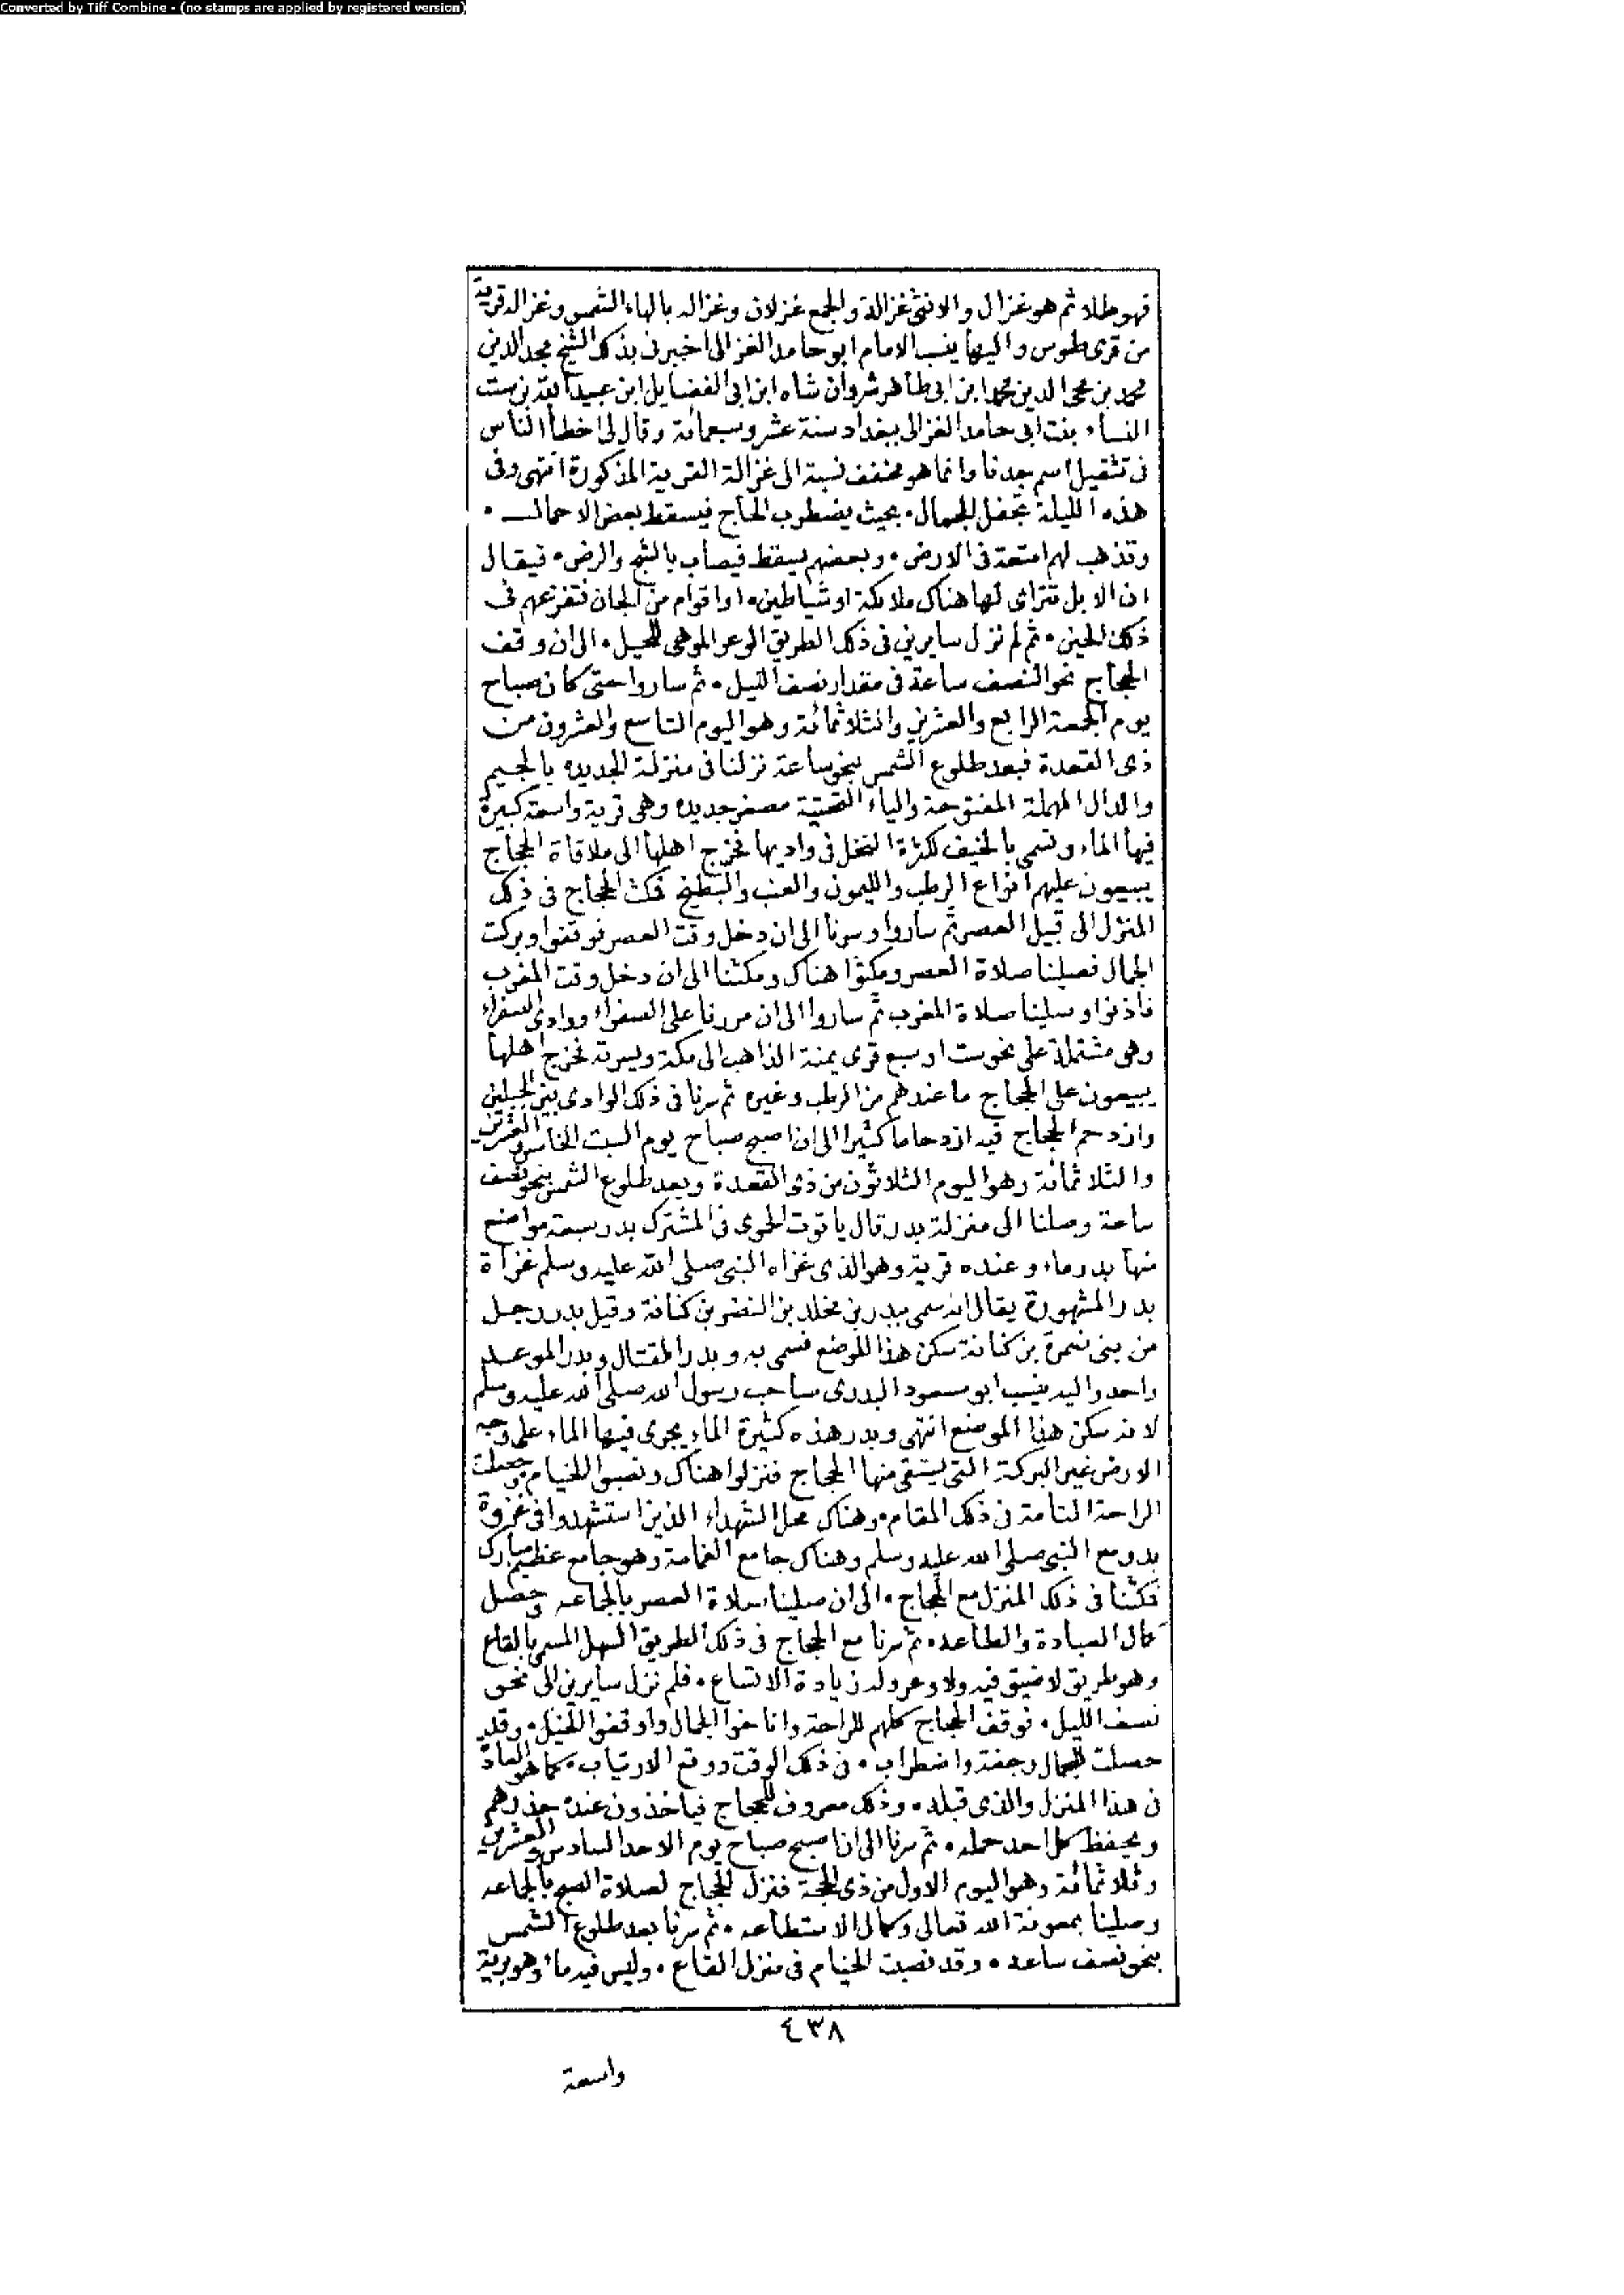 Converted by Tiff Combine - (no stamps are applied by registered version)
فهو طلا ثم هو غزال والانثى غزالة والجمع غزلان وغزاله بالهاء الشمس وغزاله قرية
من قرى طوس واليها ينسب الامام ابو حامد الغزالى اخبرنى بذلك الشيخ مجد الدين
محمد بن محى الدين محمد ابن ابى طاهر شروان شاه ابن ابى الفضايل ابن عبيد الله بن ست
النساء بنت ابى حامد الغزالى ببغداد سنة عشر وسبعمائة وقال لى اخطأ الناس
فى تثقيل اسم جدنا وانما هو مخفف نسبة الى غزالة القرية المذكورة انتهى وفى
هذه الليلة تجفل الجمال • بحيث يضطرب الحاج فيسقط بعض الاحمال •
وتذهب لهم امتعة فى الارض • وبعضهم يسقط فيصاب بالشج والرض • فيقال
ان الابل تتراى لها هناك ملائكة او شياطين • او اقوام من الجان فتفزعهم فى
ذلك الحين • ثم لم نزل سايرين فى ذلك الطريق الوعر الموهى للحيل • الى ان وقف
الحجاج نحو النصف ساعة فى مقدار نصف الليل • ثم ساروا حتى كان صباح
يوم الجمعة الرابع والعشرين والثلاثمائة وهو اليوم التاسع والعشرون من
ذى القعدة فبعد طلوع الشمس بنحو ساعة نزلنا فى منزلة الجديده بالجيم
والدال المهملة المفتوحة والياء التحتية مصغر جديده وهى قرية واسعة كبيرة
فيها الماء وتسمى بالخيف لكثرة النخل فى واديها فخرج اهلها الى ملاقاة الحجاج
يبيعون عليهم انواع الرطب والليمون والعنب والبطيخ فمكث الحجاج فى ذلك
المنزل الى قبيل العصر ثم ساروا وسرنا الى ان دخل وقت العصر فوقفوا وبركت
الجمال فصلينا صلاة العصر ومكثوا هناك ومكثنا الى ان دخل وقت المغرب
فاذنوا وصلينا صلاة المغرب ثم ساروا الى ان مررنا على الصفراء ووادى الصفراء
وهى مشتملة على نحو ست او سبع قرى يمنة الذاهب الى مكة ويسرته فخرج اهلها
يبيعون على الحجاج ما عندهم من الرطب وغيره ثم سرنا فى ذلك الوادى بين الجبلين
وازدحم الحجاج فيه ازدحاما كثيرا الى ان اصبح صباح يوم السبت الخامس والعشرين
والثلاثمائة وهو اليوم الثلاثون من ذى القعدة وبعد طلوع الشمس بنحو نصف
ساعة وصلنا الى منزلة بدر قال ياقوت الحموى فى المشترك بدر سبعة مواضع
منها بدر ماء وعنده قرية وهو الذى غزاه النبى صلى الله عليه وسلم غزاة
بدر المشهورة يقال انه سمى ببدر بن مخلد بن النضر بن كنانة وقيل بدر رجل
من بنى ضمرة بن كنانة سكن هذا الموضع فسمى به وبدر القتال وبدر الموعد
واحد واليه ينسب ابو مسعود البدرى صاحب رسول الله صلى الله عليه وسلم
لانه سكن هذا الموضع انتهى وبدر هذه كثيرة الماء يجرى فيها الماء على وجه
الارض غير البركة التى يستقى منها الحجاج فنزلوا هناك ونصبوا الخيام وحصلت
الراحة التامة فى ذلك المقام • وهناك محل الشهداء الذين استشهدوا فى غزوة
بدر مع النبى صلى الله عليه وسلم وهناك جامع الغمامة وهو جامع عظيم مبارك
فمكثنا فى ذلك المنزل مع الحجاج • الى ان صلينا صلاة العصر بالجماعه وحصل
كمال العبادة والطاعه • ثم سرنا مع الحجاج فى ذلك الطريق السهل المسمى بالقاع
وهو طريق لا ضيق فيه ولا وعر وله زيادة الاتساع • فلم نزل سايرين الى نحو
نصف الليل • فوقف الحجاج كلهم للراحة واناخوا الجمال واوقفوا الخيل • وقد
حصلت للجمال رجفة واضطراب • فى ذلك الوقت ووقع الارتياب • كما هو العادة
فى هذا المنزل والذى قبله • وذلك معروف للحجاج فياخذون عنده حذرهم
ويحفظ كل احد حمله • ثم سرنا الى ان اصبح صباح يوم الاحد السادس والعشرين
وثلاثمائة وهو اليوم الاول من ذى الحجة فنزل الحجاج لصلاة الصبح بالجماعه
وصلينا بمعونة الله تعالى وكمال الاستطاعه • ثم سرنا بعد طلوع الشمس
بنحو نصف ساعه • وقد نصبت الخيام فى منزل القاع • وليس فيه ماء وهو برية
٤٣٨
واسعة